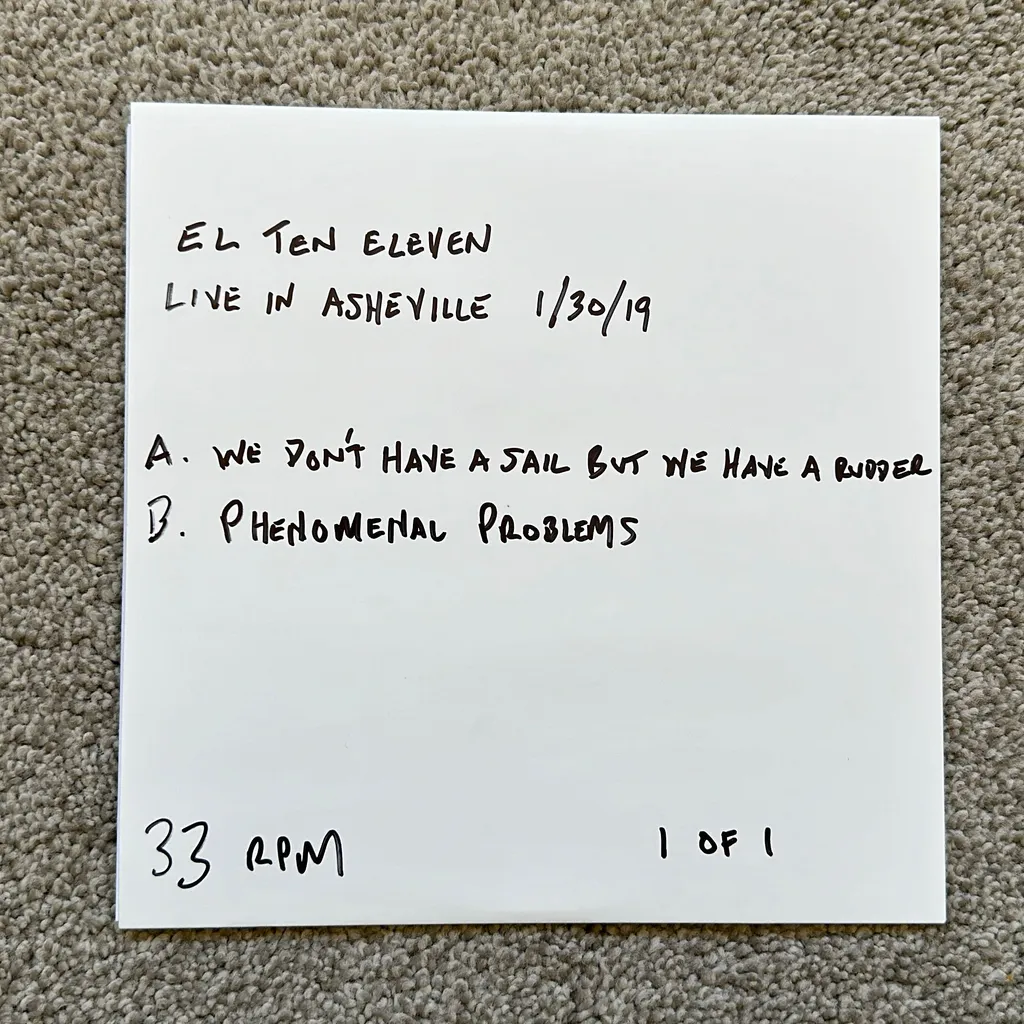 EL TEN ELEVEN
LIVE IN ASHEVILLE 1/30/19
A. WE DON'T HAVE A SAIL BUT WE HAVE A RUDDER
B. PHENOMENAL PROBLEMS
33 RPM 1 OF 1